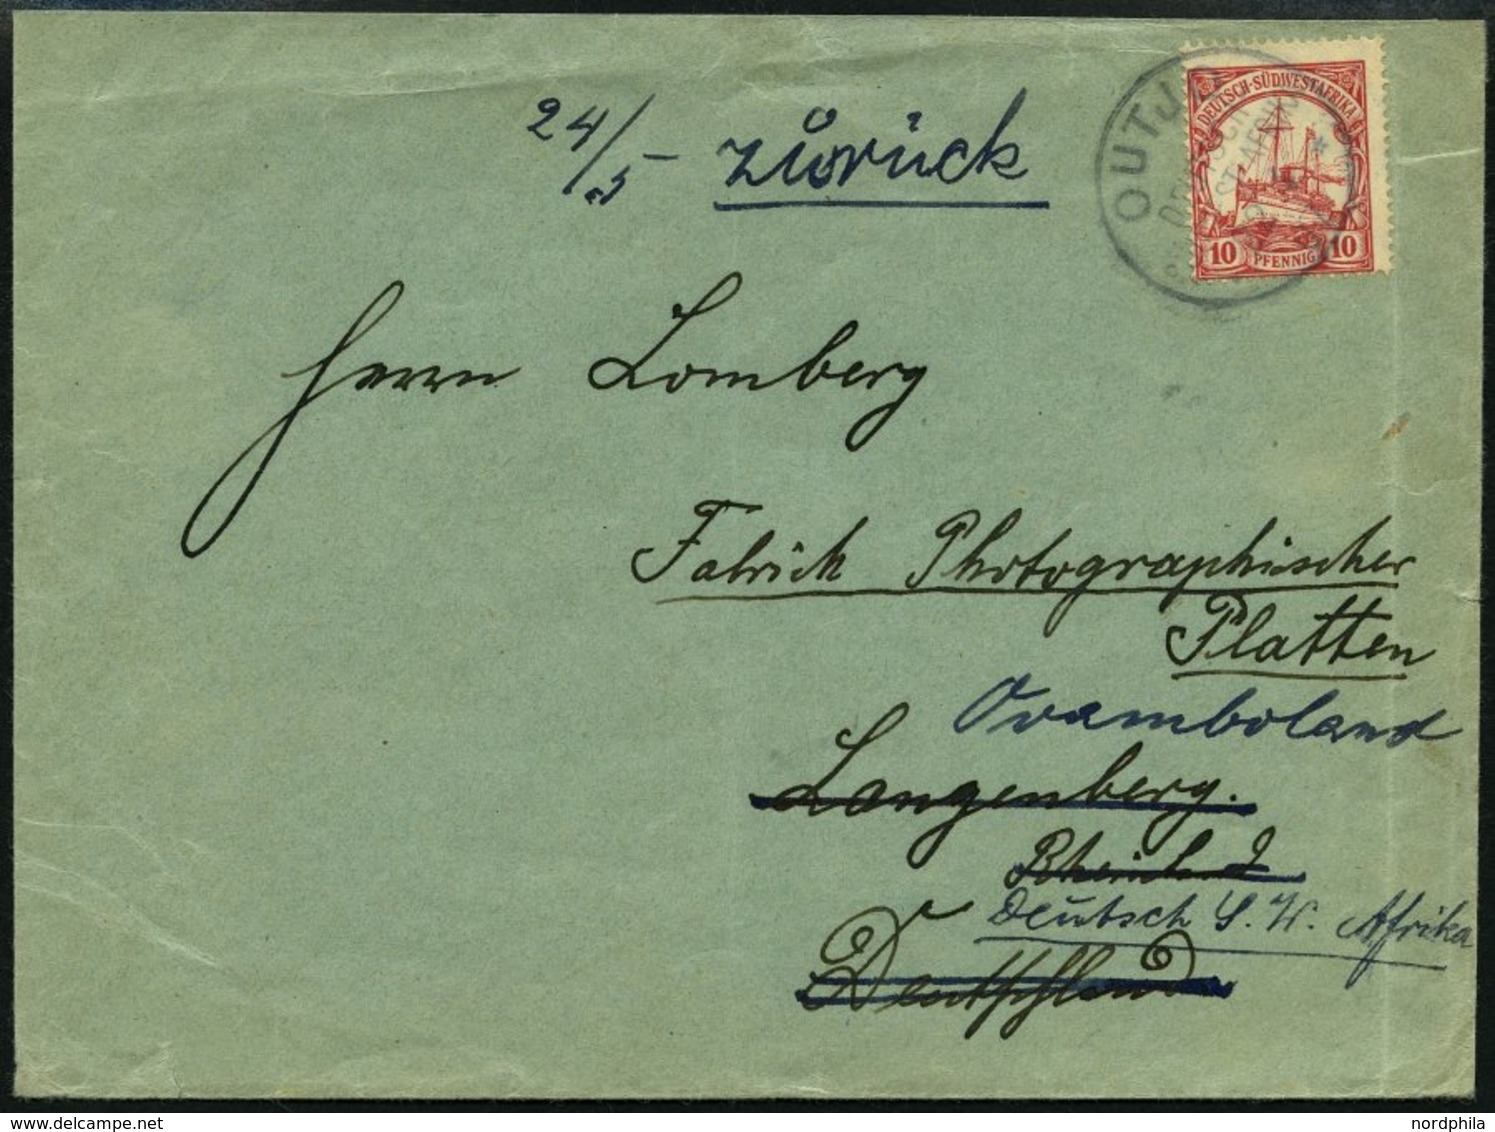 24/5 zurück
DEUTSCH-SÜDWESTAFRIKA
10 PFENNIG 10
OUTJO
Herrn Lomberg
Fabrick Photographischer
Platten
Ovamboland
Langenberg.
Deutsch S. W. Afrika
Deutschland
nordphila